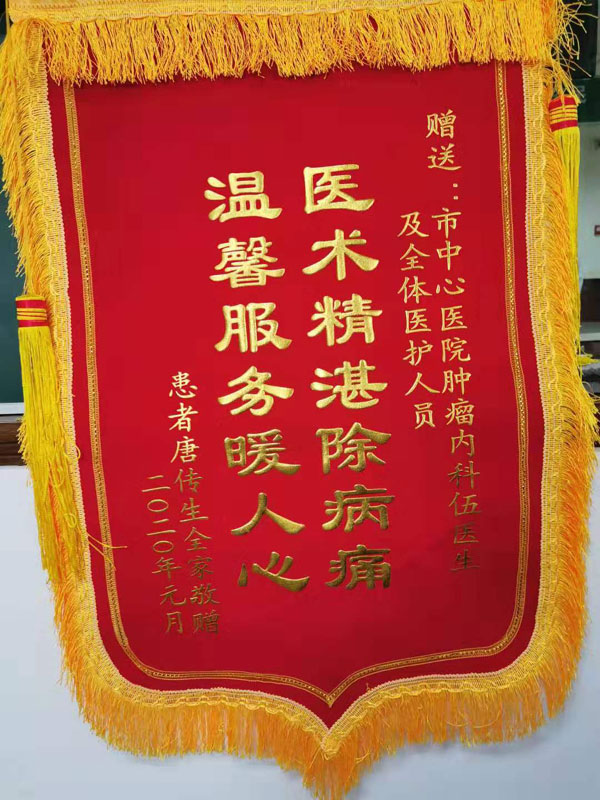 赠送：市中心医院肿瘤内科伍医生
及全体医护人员
医术精湛除病痛
温馨服务暖人心
患者唐传生全家敬赠
二〇二〇年元月